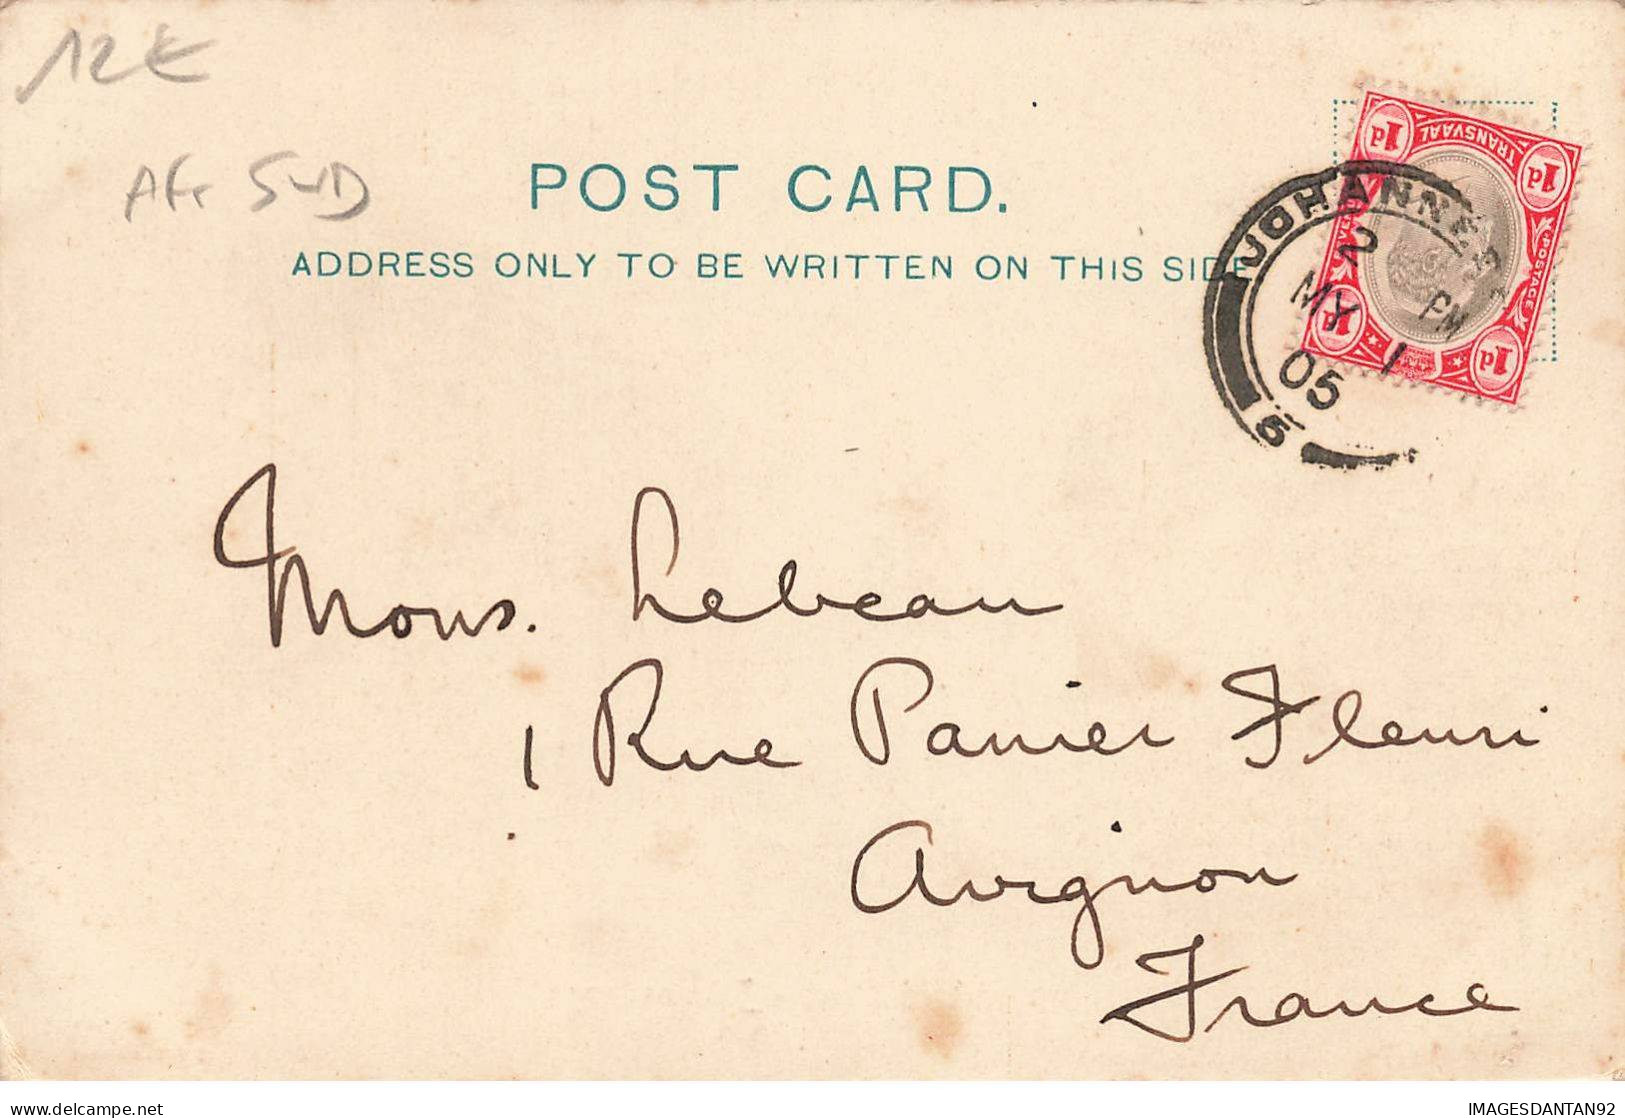 12€
AFr SUD
POST CARD.
ADDRESS ONLY TO BE WRITTEN ON THIS SIDE
TRANSVAAL
POSTAGE
1d 1d
1d 1d
JOHANNES
2 PM
MY 1
05
5
Mons. Lebeau
1 Rue Panier Fleuri
Avignon
France
delcampe.net
IMAGESDANTAN92